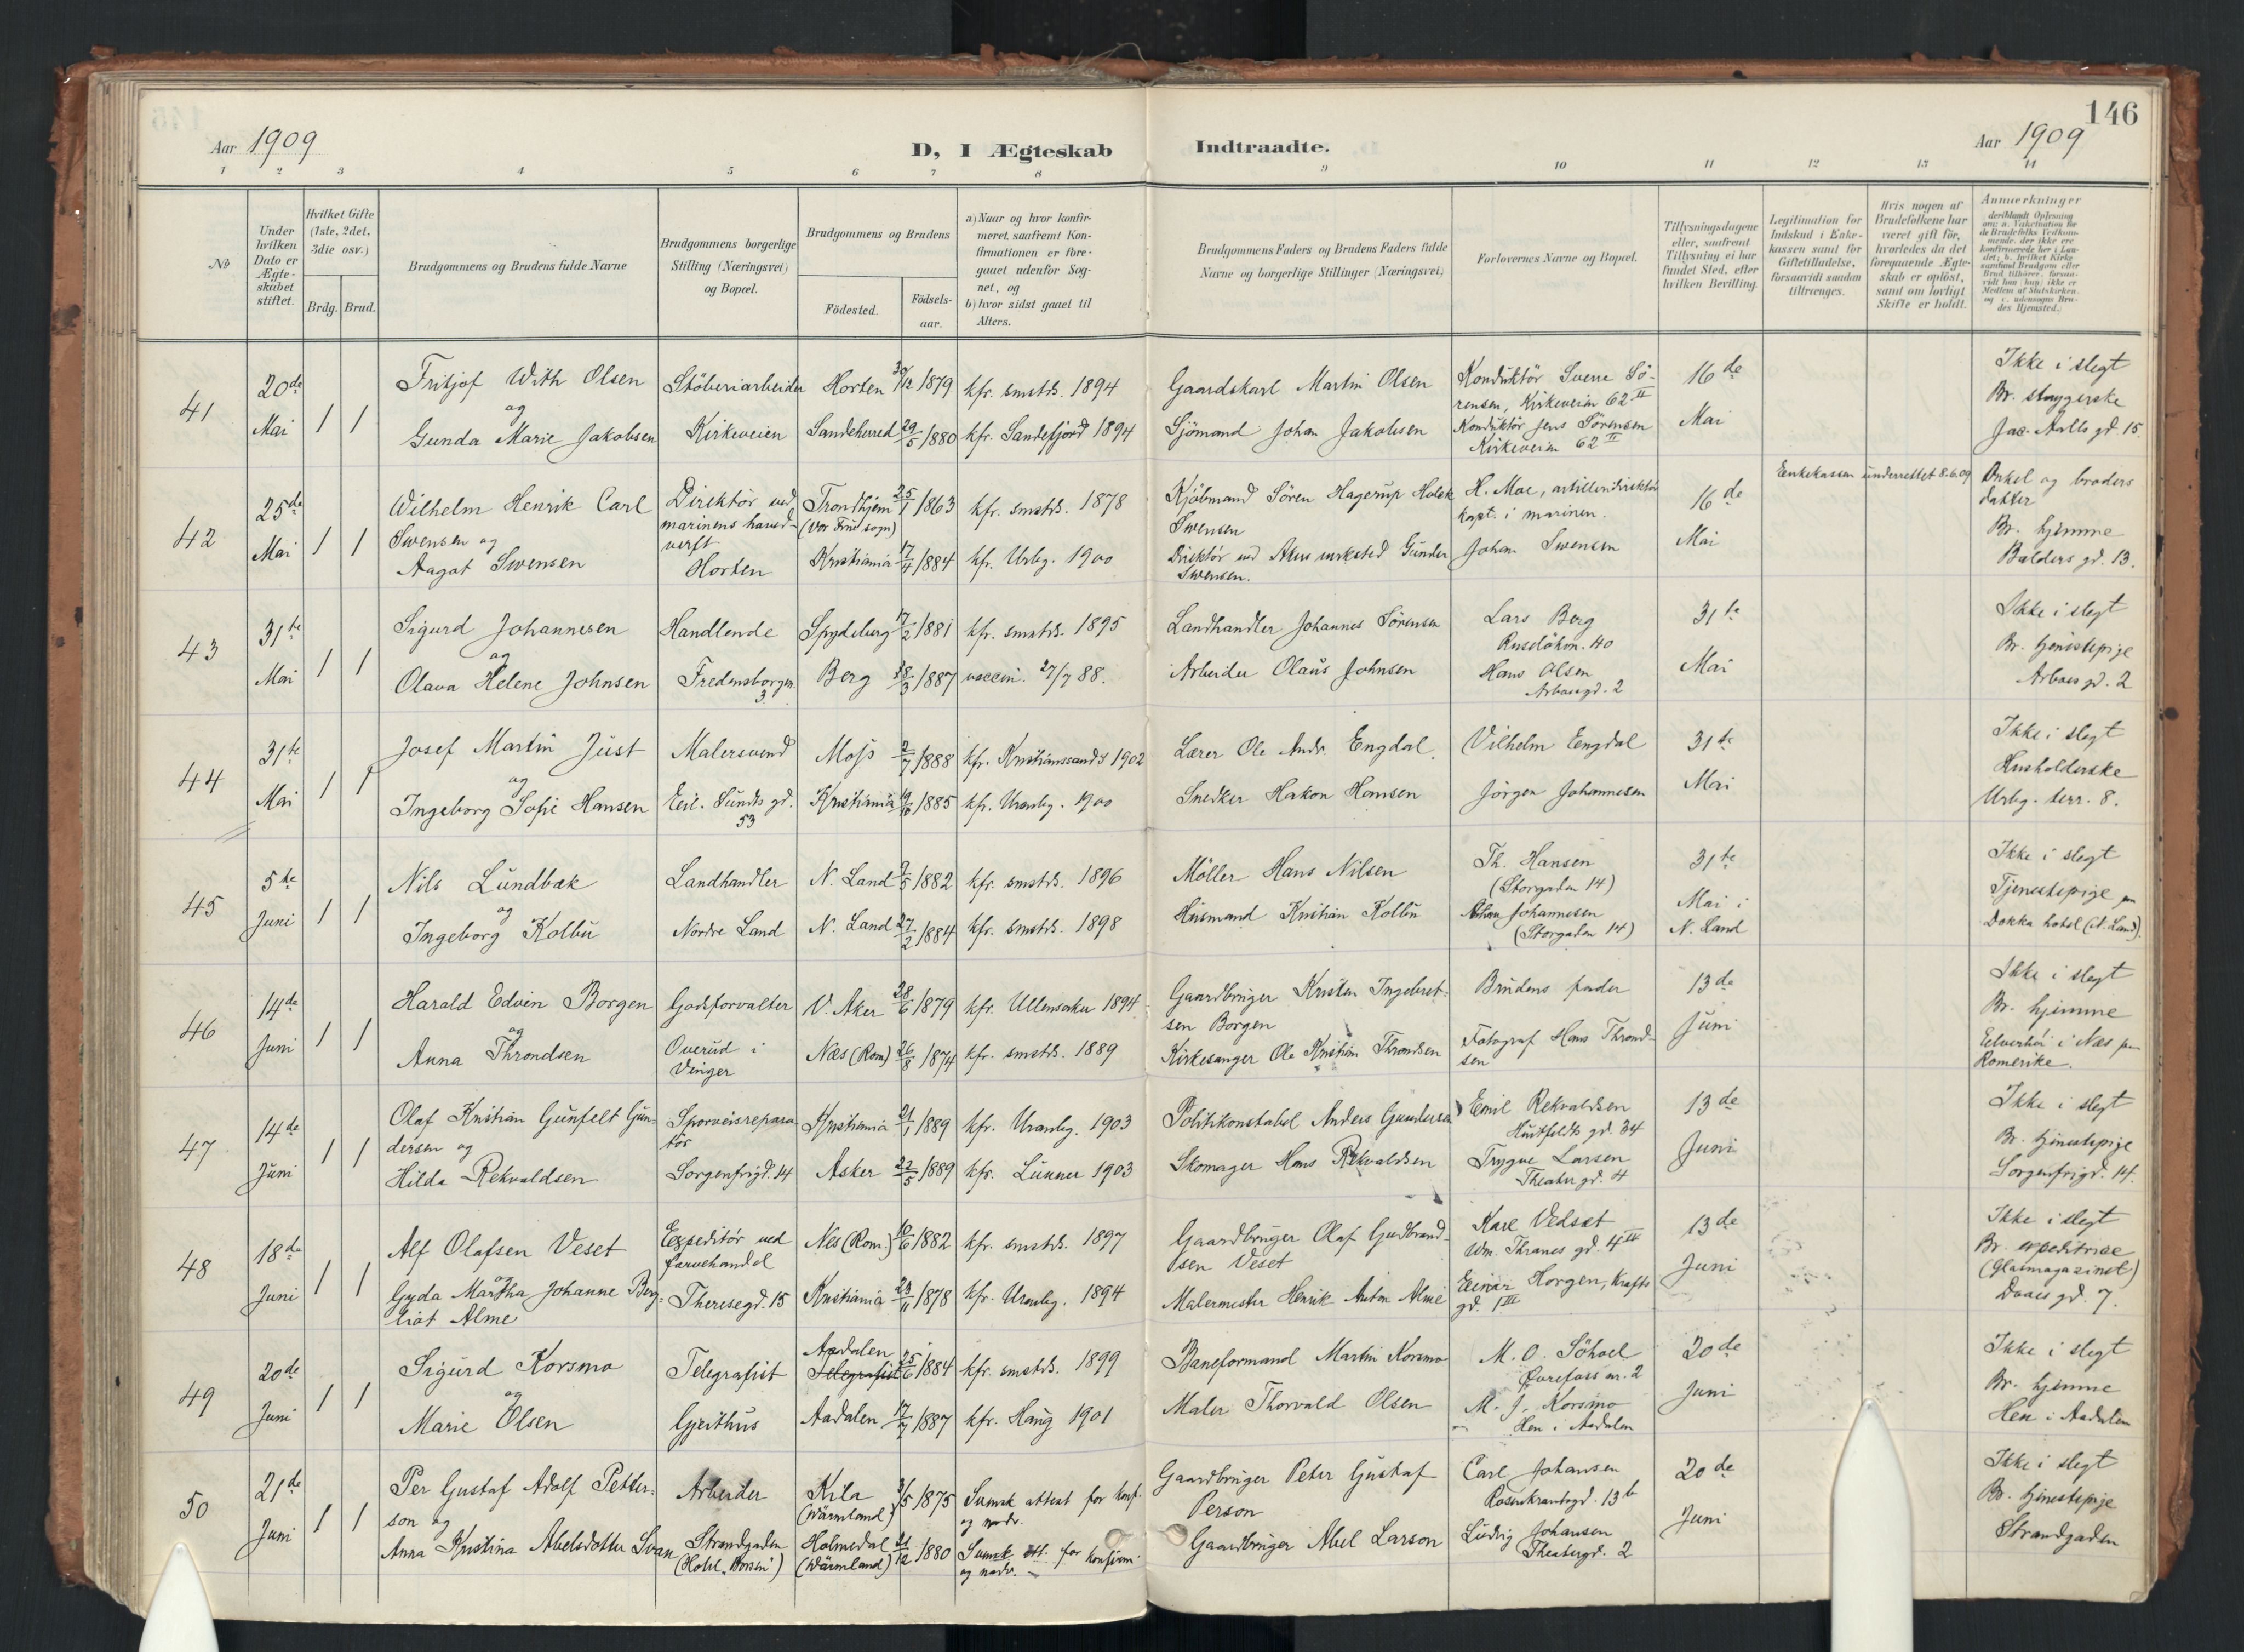 146
Aar 1909
D, I Ægteskab Indtraadte.
Aar 1909
1 2 3 4 5 6 7 8 9 10 11 12 13 14
№
Under hvilken Dato er Ægteskabet stiftet.
Hvilket Gifte (1ste, 2det, 3die osv.)
Brdg. Brud.
Brudgommens og Brudens fulde Navne
Brudgommens borgerlige Stilling (Næringsvei) og Bopæl.
Brudgommens og Brudens
Födested.
Födselsaar.
a) Naar og hvor konfirmeret, saafremt Konfirmationen er foregaaet udenfor Sognet, og
b) hvor sidst gaaet til Alters.
Brudgommens Faders og Brudens Faders fulde Navne og borgerlige Stillinger (Næringsvei)
Forlovernes Navne og Bopæl.
Tillysningsdagene eller, saafremt Tillysning ei har fundet Sted, efter hvilken Bevilling.
Legitimation for Indskud i Enkekassen samt for Giftetilladelse, forsaavidt saadan tiltrænges.
Hvis nogen af Brudefolkene har været gift før, hvorledes da det foregaaende Ægteskab er opløst, samt om lovligt Skifte er holdt.
Anmærkninger
41
20de Mai
1 1
Fritjof With Olsen
og
Gunda Marie Jakobsen
Stöberiarbeider
Kirkeveien
Horten 30/12 1879
Sandeherred 29/5 1880
kfr. smstds. 1894
kfr. Sandefjord 1894
Gaardskarl Martin Olsen
Sjömand Johan Jakobsen
Konduktör Sverre Sörensen, Kirkeveien 62 II
Konduktör Jens Sörensen
Kirkeveien 62 II
16de Mai
Ikke i slegt
Br. strygerske
Jac. Aalls gd. 15.
42
25de Mai
1 1
Wilhelm Henrik Carl
Swensen og
Aagot Swensen
Direktör ved
marinens hovedverft
Horten
Trondhjem 25/1 1863
(Vor Frue sogn)
Kristiania 17/4 1884
kfr. smstds. 1878
kfr. Urbg. 1900
Kjöbmand Sören Hagerup Holck
Swensen
Direktör ved Akers verksted Gunder
Swensen.
H. Moe, artilleridirektör
kapt. i marinen.
Johan Swensen
16de Mai
Enkekassen underrettet 8.6.09
Onkel og broders
datter
Br. hjemme
Balders gd. 13.
43
31te Mai
1 1
Sigurd Johannesen
og
Olava Helene Johnsen
Handlende
Fredensborgv. 3
Spydeberg 17/2 1881
Berg 18/3 1887
kfr. smstds. 1895
vaccin. 27/7 88.
Landhandler Johannes Sörensen
Arbeider Olaus Johnsen
Lars Berg
Hans Olsen
Arboes gd. 2
31te Mai
Ikke i slegt
Br. tjenestepige
Arboes gd. 2
44
31te Mai
1 1
Josef Martin Just
og
Ingeborg Sofie Hansen
Malersvend
Eil. Sundts gd. 53
Moss 2/7 1888
Kristiania 19/10 1885
kfr. Kristianssand 1902
kfr. Uranbg. 1900
Lærer Ole Andr. Engdal.
Snedker Hakon Hansen
Vilhelm Engdal
Jörgen Johannesen
31te Mai
Ikke i slegt
Husholderske
Urbg. terr. 8.
45
5te Juni
1 1
Nils Lundbæk
og
Ingeborg Kolbu
Landhandler
Nordre Land
N. Land 9/5 1882
N. Land 27/2 1884
kfr. smstds. 1896
kfr. smstds. 1898
Möller Hans Nilsen
Husmand Kristian Kolbu
Th. Hansen
(Storgaden 14)
Johannesen
(Storgaden 14)
31te Mai i
N. Land
Ikke i slegt
Tjenestepige paa
Dokka hotel (N. Land).
46
14de Juni
1 1
Harald Edvin Borgen
og
Anna Throndsen
Godsforvalter
Overud i
Vinger
V. Aker 28/6 1879
Næs (Rom) 26/8 1874
kfr. Ullensaker 1894
kfr. smstds. 1889
Gaardbruger Kristen Ingebretsen Borgen
Kirkesanger Ole Kristian Throndsen
Brudens fader
Fotograf Hans Throndsen
13de Juni
Ikke i slegt
Br. hjemme
i Næs paa
Romerike.
47
14de Juni
1 1
Olaf Kristian Gunfelt Gundersen og
Hilda Rekvaldsen
Sporveisreparatör
Sorgenfrigd. 14
Kristiania 21/1 1889
Asker 22/5 1889
kfr. Uranbg. 1903
kfr. Lunner 1903
Politikonstabel Anders Gundersen
Skomager Hans Rekvaldsen
Emil Rekvaldsen
Huitfeldts gd. 34
Trygve Larsen
Theater gd. 4
13de Juni
Ikke i slegt
Br. tjenestepige
Sorgenfrigd. 14.
48
18de Juni
1 1
Alf Olafsen Veset
og
Gyda Martha Johanne Bergliot Alme
Expeditör ved
farvehandel
Theresegd. 15
Nes (Rom.) 10/6 1882
Kristiania 23/11 1878
kfr. smstds. 1897
kfr. Uranbg. 1894
Gaardbruger Olaf Gudbrandsen Veset
Malermester Henrik Anton Alme
Karl Vedset
Wm. Thranes gd. 4 III
Einar Horgen, Krafts
gd. 1 III
13de Juni
Ikke i slegt
Br. expeditrice
(Glasmagazinet)
Daaes gd. 7.
49
20de Juni
1 1
Sigurd Korsmo
og
Marie Olsen
Telegrafist
Gjeithus
Aadalen
Telegrafist 25/6 1884
Aadalen 17/7 1887
kfr. smstds. 1899
kfr. Haug 1901
Baneformand Martin Korsmo
Maler Thorvald Olsen
M. O. Söhoel
M. J. Korsmo
Hen i Aadalen
20de Juni
Ikke i slegt
Br. hjemme
Hen i Aadalen
50
21de Juni
1 1
Per Gustaf Adolf Petterson og
Anna Kristina Abelsdotter Svan
Arbeider
Strandgaden
(Hotel „Norsen")
Kila 3/5 1875
(Wärmland)
Holmedal 21/12 1880
(Wärmland)
Svensk attest for konf.
og nadv.
Svensk att. for konfirm.
og nadv.
Gaardbruger Peter Gustaf
Person
Gaardbruger Abel Larson
Carl Johansen
Rosenkrantzgd. 13b
Ludvig Johansen
Theatergd. 2
20de Juni
Ikke i slegt
Br. tjenestepige
Strandgaden